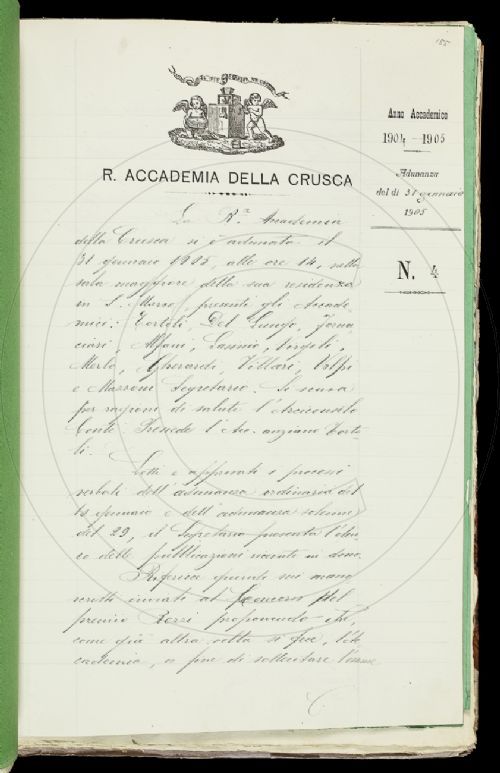 155
R. ACCADEMIA DELLA CRUSCA
Anno Accademico
1904 - 1905
Adunanza
del dì 31 gennaio
1905
N. 4
La R.ª Accademia
della Crusca si è adunata il
31 gennaio 1905, alle ore 14, nella
sala maggiore della sua residenza
in S. Marco, presenti gli Accade-
mici: Tortoli, Del Lungo, Forna-
ciari, Alfani,
Merlo, Gherardi, Villari, Volpi
e Mazzoni Segretario. Si scusa
per ragioni di salute l'Arciconsolo
Conti. Presiede l'Acc. anziano Torto-
li.
Letti e approvati i processi
verbali dell'adunanza ordinaria del
gennaio e dell'adunanza solenne
del 29, il Segretario presenta l'elen-
co delle pubblicazioni ricevute in dono.
Riferisce quindi sui mano
scritti inviati al Concorso del
premio Rezzi proponendo che,
come già altra volta si fece, l'Ac
cademia, a fine di sollecitare l'esame